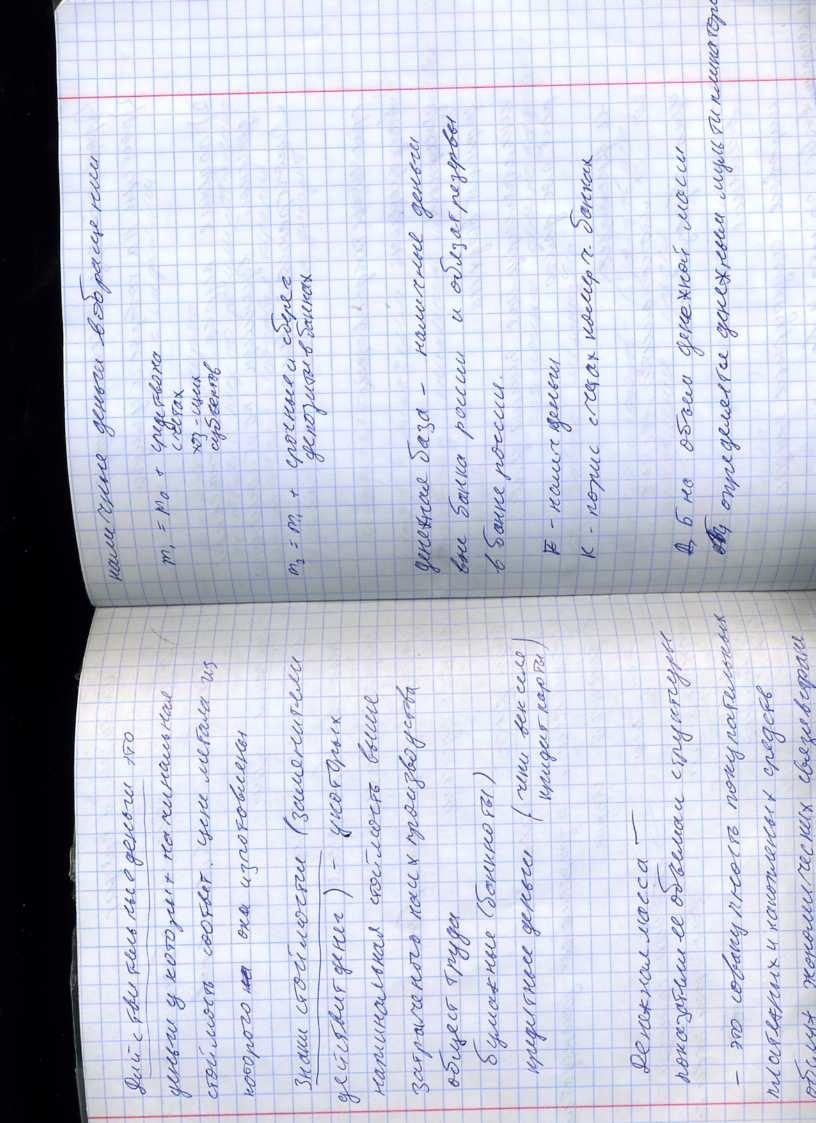 Действительные деньги это
деньги у которых наминальная
стоймость соответ. цене метала из
которого они изготовлены
Знаки стоймости (заменители
действит денег) – у которых
наминальная стоймость выше
затраченого на их производства
общест труда
бумажные (банкноты)
кредитные деньги (чеки векселе
кридит карты)
Денежная масса –
показатели ее объемаи структуры
– это совокупность покупательных
платежных и накопленых средств
наличные деньги вобращении
m₁ = m₀ + средства на
счетах
хоз-щих
субъектов
m₂ = m₁ + срочные и сберег
депозиты в банках
денежная база – наличные деньги
вне банка росии и обязат резервы
в банке росии.
F - налич деньги
К - корис счетах комерч. банках
Д Б на объем денежной массы
определяется денежным мультипликатором